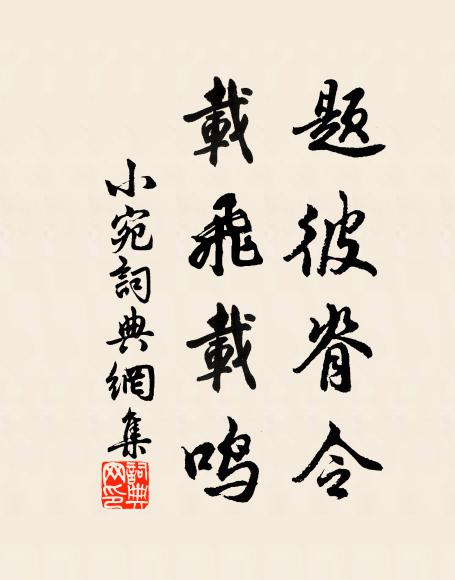 題彼脊令
載飛載鳴
小宛詞典網集
詞典网印